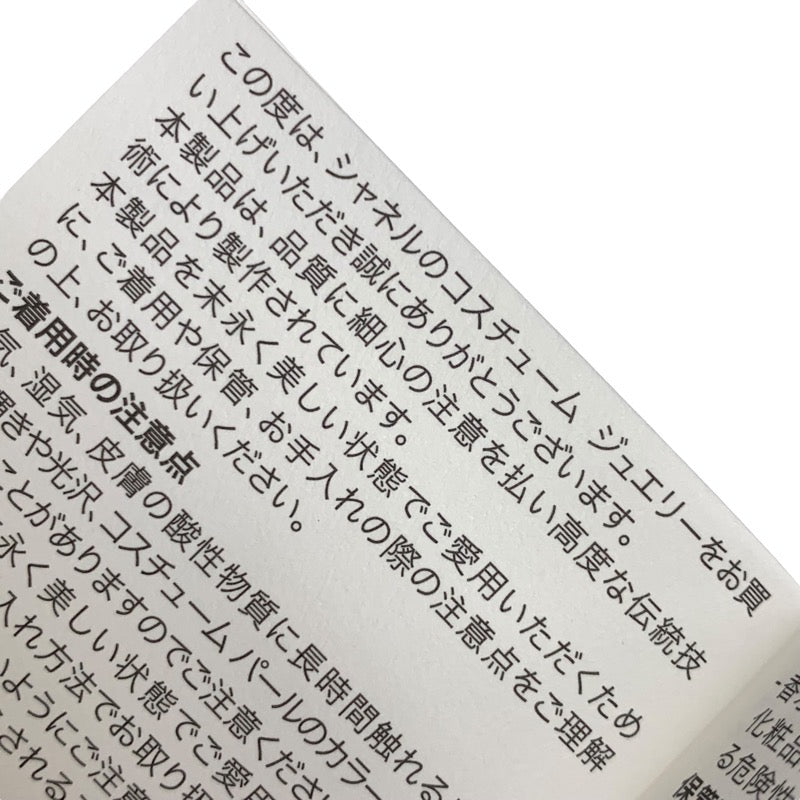 この度は、シャネルのコスチューム ジュエリーをお買
い上げいただき誠にありがとうございます。
本製品は、品質に細心の注意を払い高度な伝統技
術により製作されています。
本製品を末永く美しい状態でご愛用いただくため
に、ご着用や保管、お手入れの際の注意点をご理解
の上、お取り扱いください。
ご着用時の注意点
気、湿気、皮膚の酸性物質に長時間触れる
輝きや光沢、コスチューム パールのカラー
ことがありますのでご注意くださ
永く美しい状態でご愛用
入れ方法でお取り扱
ようにご注意
される
化粧品
る危険性